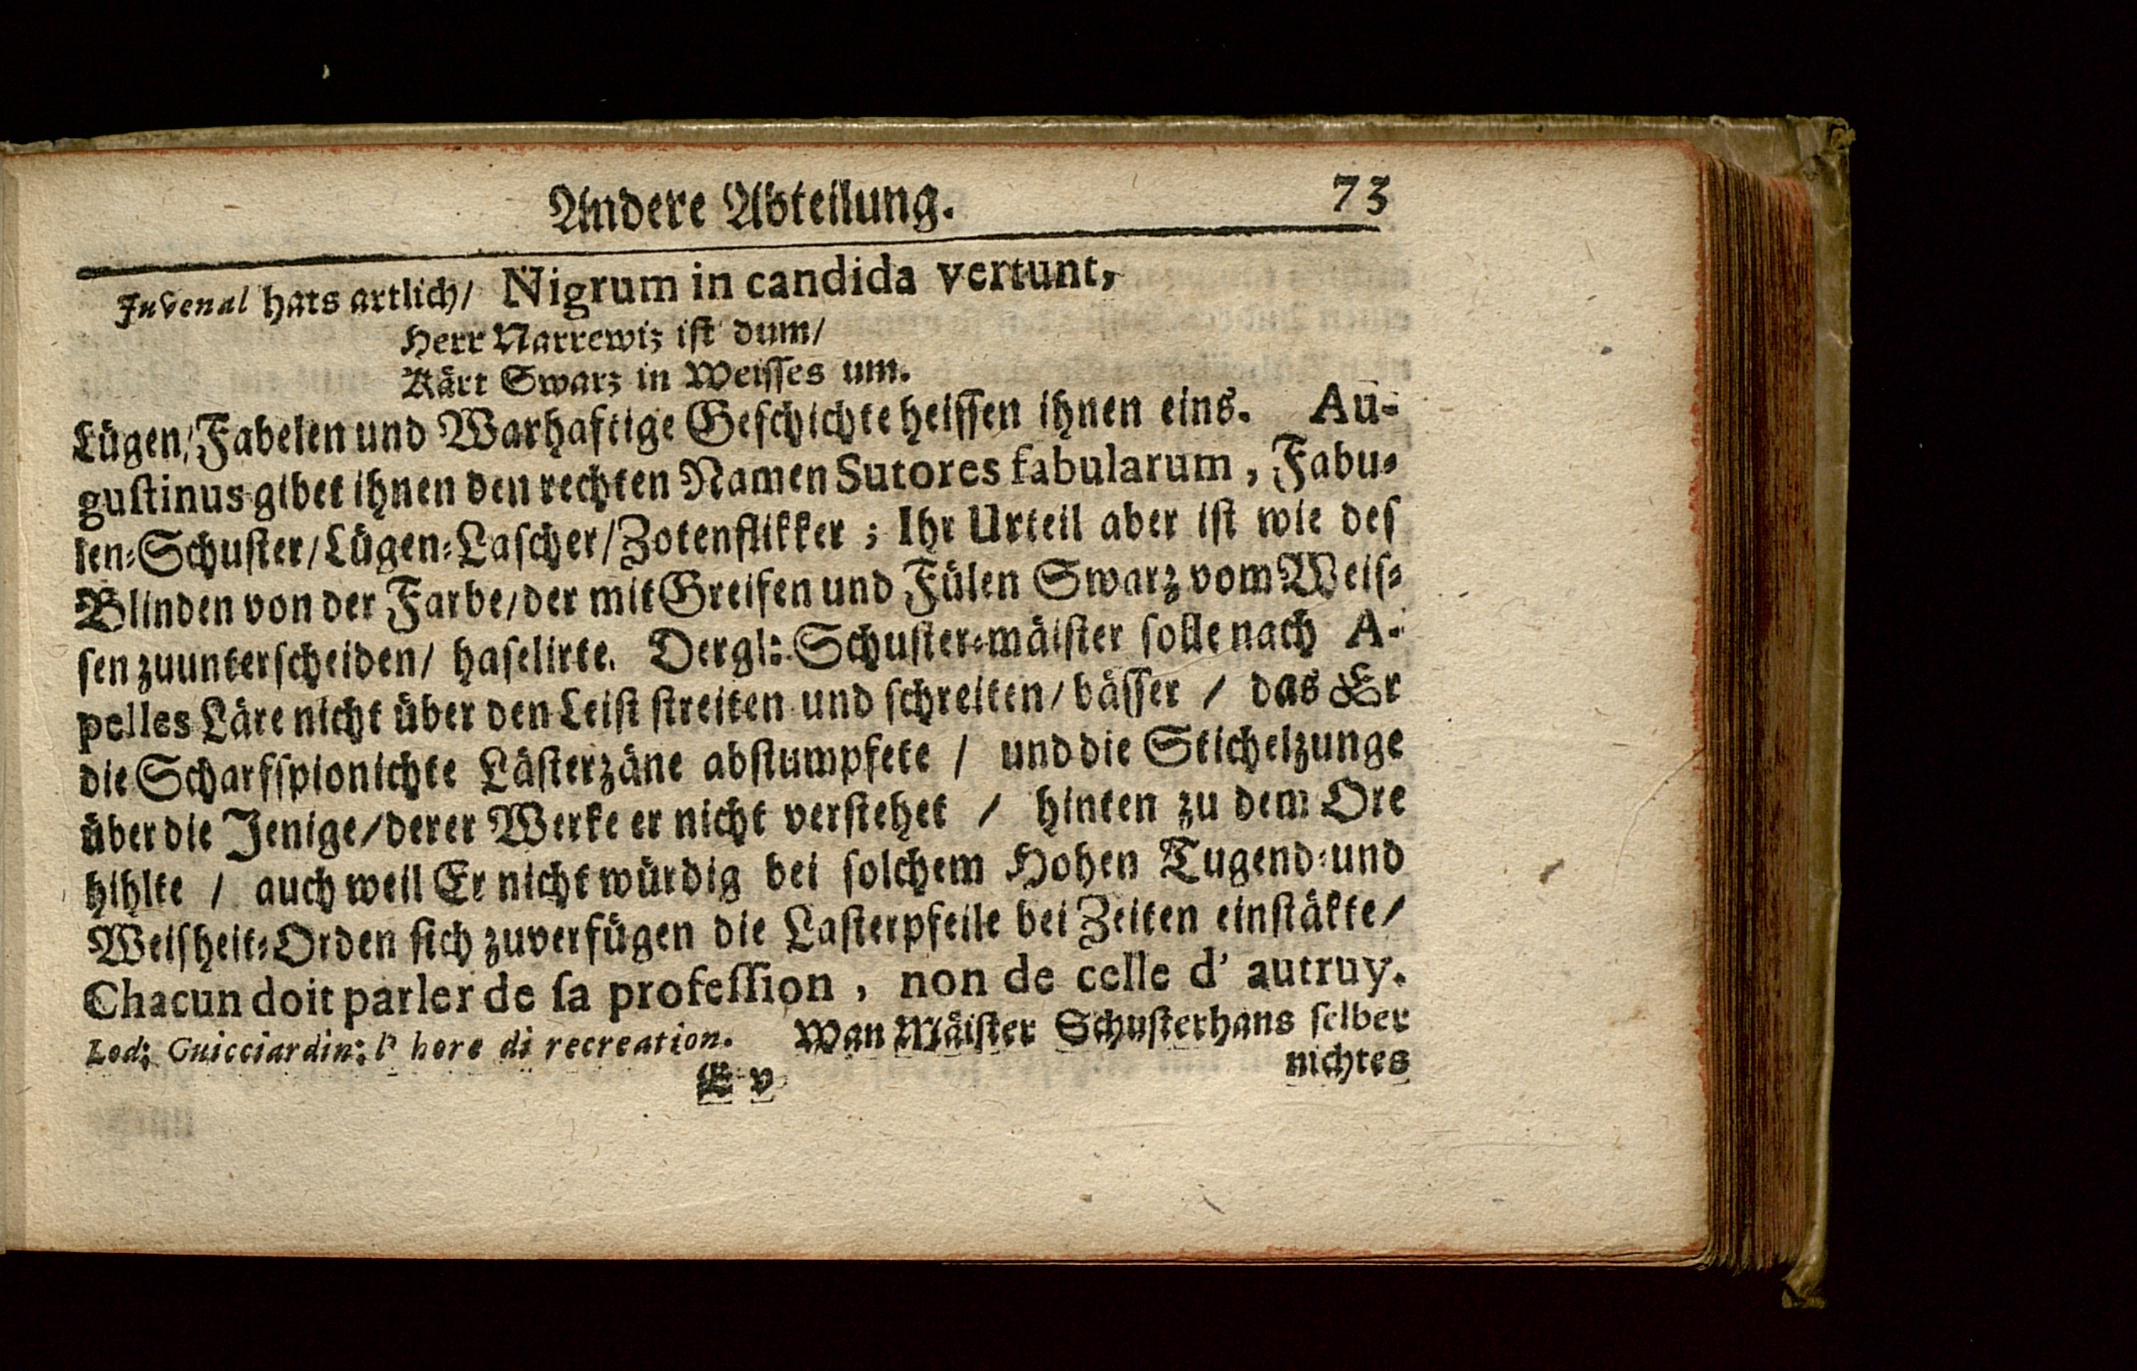 Andere Abteilung. 73
Juvenal hats artlich/ Nigrum in candida vertunt,
Herr Narrewiz ist dum/
Kärt Swarz in Weisses um.
Lügen/Fabelen und Warhaftige Geschichte heissen ihnen eins. Au-
gustinus gibet ihnen den rechten Namen Sutores fabularum, Fabu-
len-Schuster/Lügen-Lascher/Zotenflikker; Ihr Urteil aber ist wie des
Blinden von der Farbe/der mit Greifen und Fülen Swarz vom Weis-
sen zuunterscheiden/ haselirte. Dergl: Schuster-mäister solle nach A-
pelles Läre nicht über den Leist streiten und schreiten/bässer / das Er
die Scharfspionichte Lästerzäne abstumpfete / und die Stichelzunge
über die Jenige/derer Werke er nicht verstehet / hinten zu dem Ore
hihlte / auch weil Er nicht würdig bei solchem Hohen Tugend-und
Weisheit-Orden sich zuverfügen die Lasterpfeile bei Zeiten einstäkte/
Chacun doit parler de sa profession, non de celle d' autruy.
Lod: Guicciardin: l' hore di recreation. Wan Mäister Schusterhans selber
E v nichtes